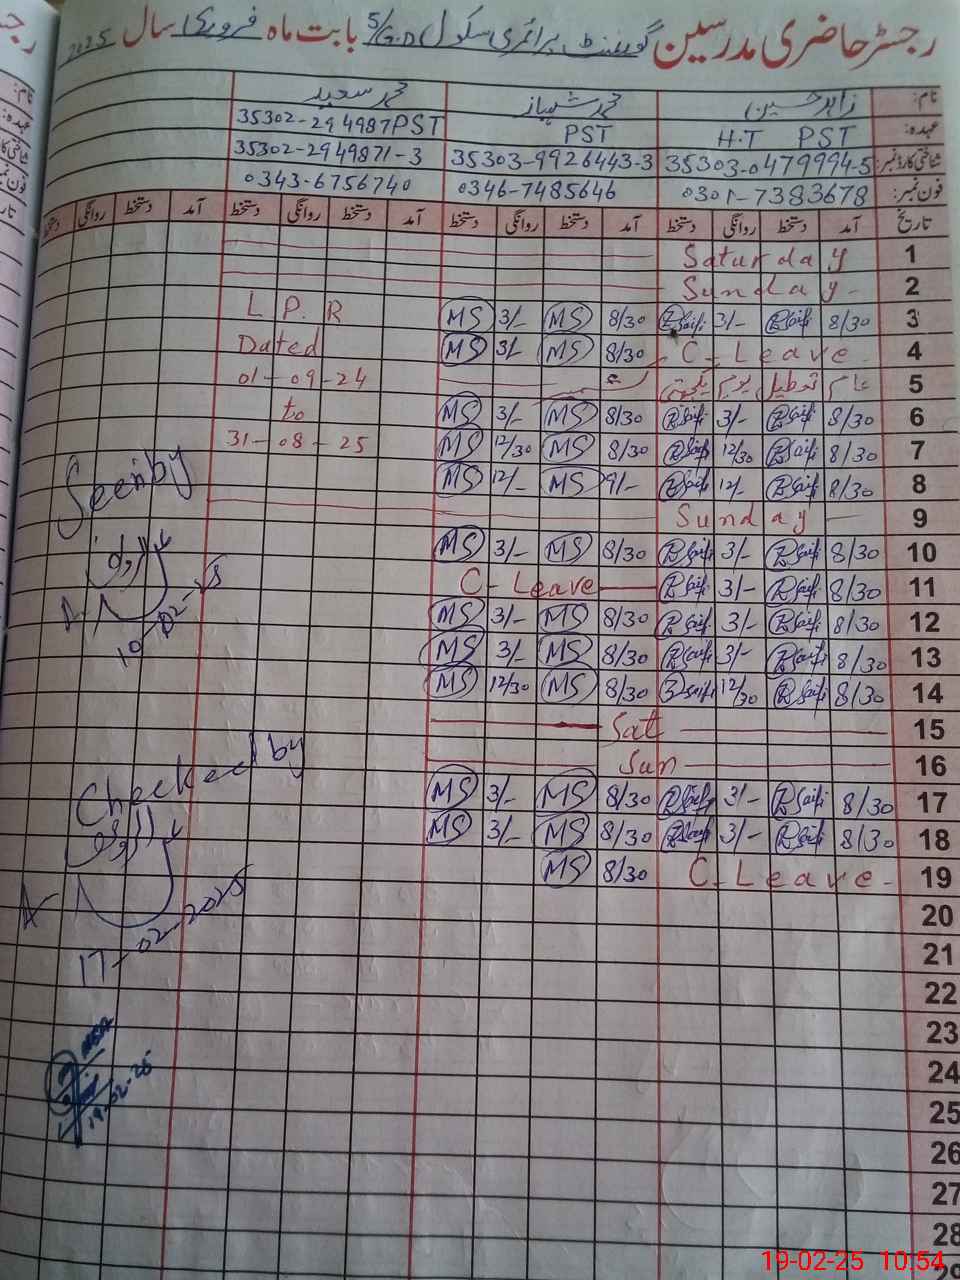 رجسٹر حاضری مدرسین گورنمنٹ پرائمری سکول 5/G.D بابت ماہ فروری سال 2025
نام: زاہد حسین محمد شہباز محمد سعید
عہدہ: H.T PST PST 35302-294987PST
شناختی کارڈ نمبر: 35303-0479994-5 35303-9926443-3 35302-2949871-3
فون نمبر: 0301-7383678 0346-7485646 0343-6756740
تاریخ آمد دستخط روانگی دستخط آمد دستخط روانگی دستخط آمد دستخط روانگی دستخط آمد دستخط روانگی دستخط
1 Saturday
2 Sunday
3 8/30 Zsaifi 3/- Zsaifi 8/30 MS 3/- MS L.P.R
4 C-Leave 8/30 MS 3/- MS Dated
5 عام تعطیل یوم یکجہتی 01-09-24
6 8/30 Zsaifi 3/- Zsaifi 8/30 MS 3/- MS to
7 8/30 Zsaifi 12/30 Zsaifi 8/30 MS 12/30 MS 31-08-25
8 8/30 Zsaifi 12/- Zsaifi 9/- MS 12/- MS
Seen by
9 Sunday
10 8/30 Zsaifi 3/- Zsaifi 8/30 MS 3/- MS
11 8/30 Zsaifi 3/- Zsaifi C-Leave
12 8/30 Zsaifi 3/- Zsaifi 8/30 MS 3/- MS
10-02-25
13 8/30 Zsaifi 3/- Zsaifi 8/30 MS 3/- MS
14 8/30 Zsaifi 12/30 Zsaifi 8/30 MS 12/30 MS
15 Sat
16 Sun
Checked by
17 8/30 Zsaifi 3/- Zsaifi 8/30 MS 3/- MS
18 8/30 Zsaifi 3/- Zsaifi 8/30 MS 3/- MS
19 C-Leave 8/30 MS
17-02-2025
20
21
22
23
24
19-02-25
25
26
27
28
29
19-02-25 10:54